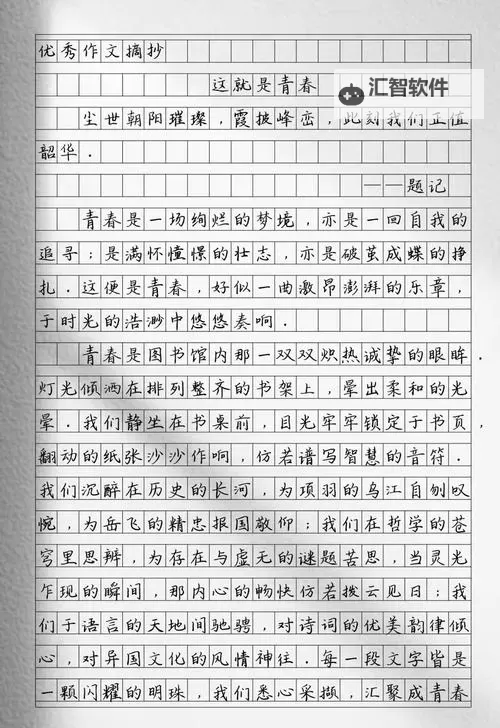 优秀作文摘抄
这就是青春
汇智软件
尘世朝阳璀璨，霞披峰峦，此刻我们正值
韶华.
——题记
青春是一场绚烂的梦境，亦是一回自我的
追寻；是满怀憧憬的壮志，亦是破茧成蝶的挣
扎.这便是青春，好似一曲激昂澎湃的乐章，
于时光的浩渺中悠悠奏响.
青春是图书馆内那一双双炽热诚挚的眼眸.
灯光倾洒在排列整齐的书架上，晕出柔和的光
晕.我们静坐在书桌前，目光牢牢锁定于书页，
翻动的纸张沙沙作响，仿若谱写智慧的音符.
我们沉醉在历史的长河，为项羽的乌江自刎叹
惋，为岳飞的精忠报国敬仰；我们在哲学的苍
穹里思辨，为存在与虚无的谜题苦思，当灵光
乍现的瞬间，那内心的畅快仿若拨云见日；我
们于语言的天地间驰骋，对诗词的优美韵律倾
心，对异国文化的风情神往.每一段文字皆是
一颗闪耀的明珠，我们悉心采撷，汇聚成青春